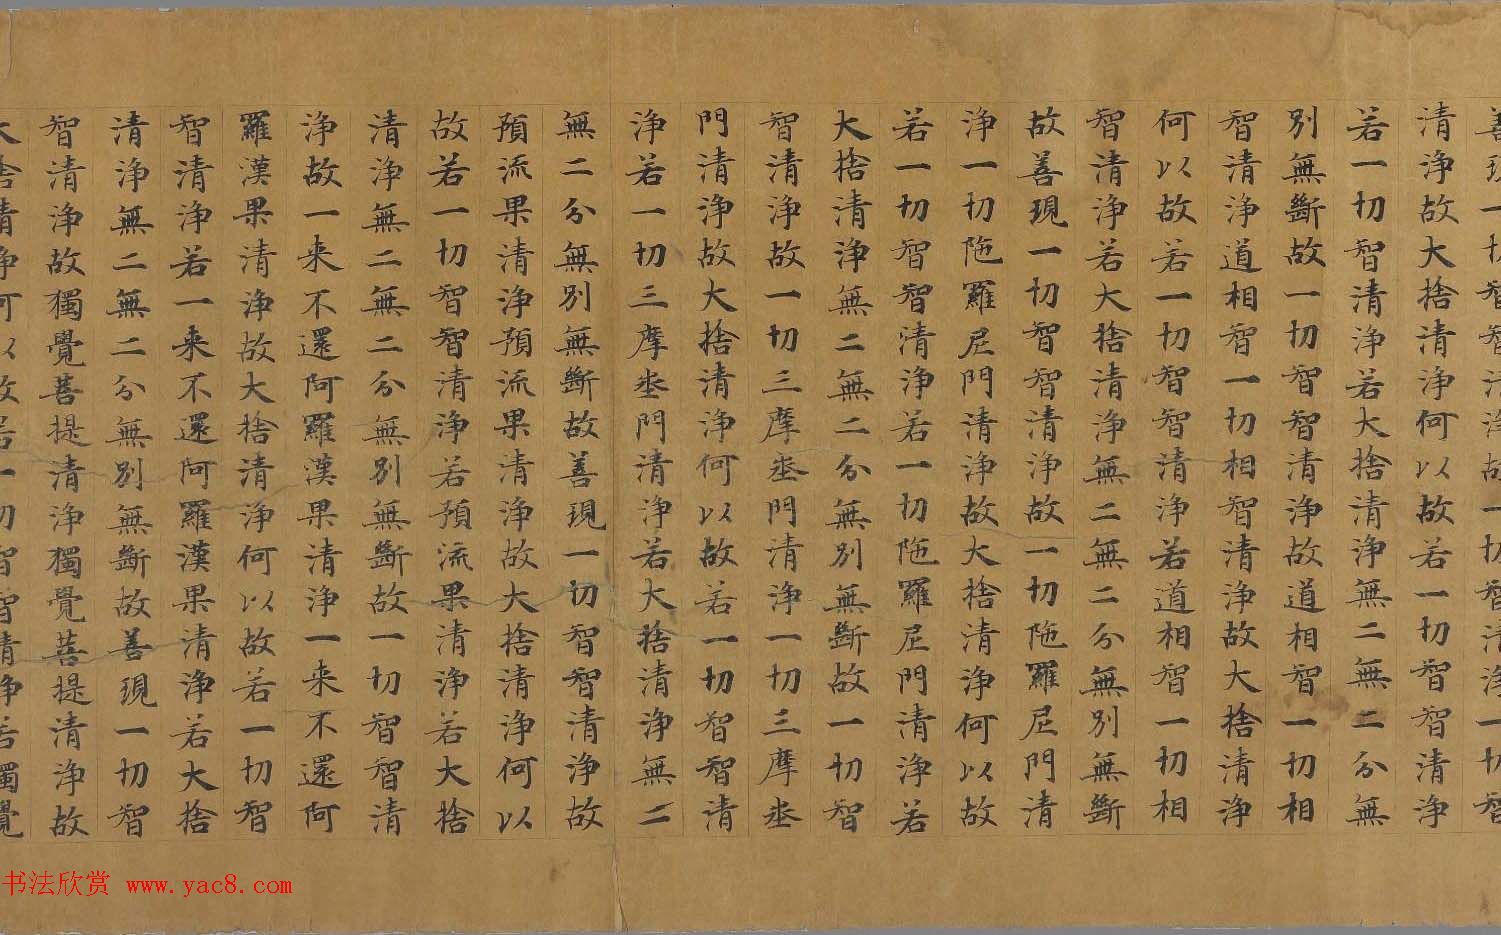 善現一切智智清淨故一切智智清淨一切智
清淨故大捨清淨何以故若一切智智清淨
若一切智清淨若大捨清淨無二無二分無
別無斷故一切智智清淨故道相智一切相
智清淨道相智一切相智清淨故大捨清淨
何以故若一切智智清淨若道相智一切相
智清淨若大捨清淨無二無二分無別無斷
故善現一切智智清淨故一切陁羅尼門清
淨一切陁羅尼門清淨故大捨清淨何以故
若一切智智清淨若一切陁羅尼門清淨若
大捨清淨無二無二分無別無斷故一切智
智清淨故一切三摩坐門清淨一切三摩坐
門清淨故大捨清淨何以故若一切智智清
淨若一切三摩坐門清淨若大捨清淨無二
無二分無別無斷故善現一切智智清淨故
預流果清淨預流果清淨故大捨清淨何以
故若一切智智清淨若預流果清淨若大捨
清淨無二無二分無別無斷故一切智智清
淨故一来不還阿羅漢果清淨一来不還阿
羅漢果清淨故大捨清淨何以故若一切智
智清淨若一来不還阿羅漢果清淨若大捨
清淨無二無二分無別無斷故善現一切智
智清淨故獨覺菩提清淨獨覺菩提清淨故
大捨清淨何以故若一切智智清淨若獨覺
书法欣赏 www.yac8.com